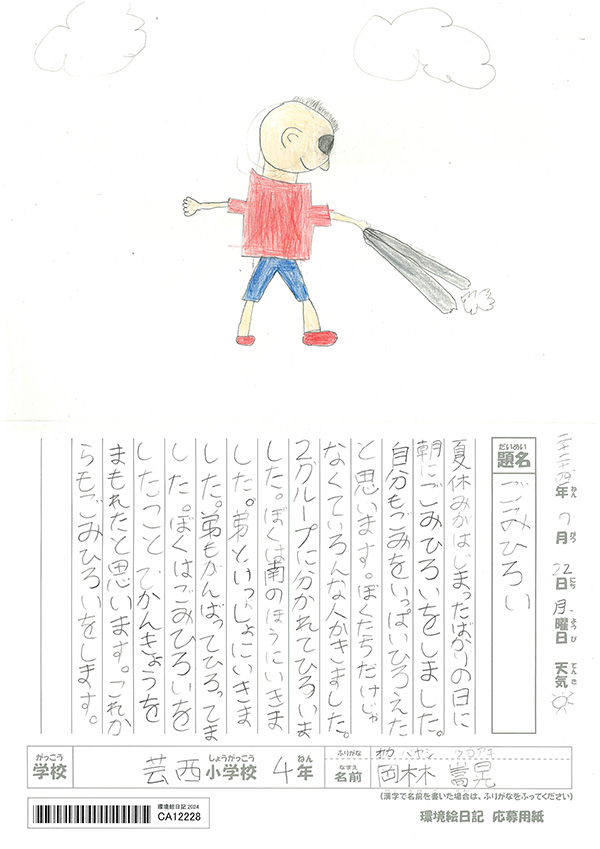 二千二十四年 7月 22日 月曜日 天気
ねん がつ にち ようび てんき
だいめい
題名 ごみひろい
夏休みがはじまったばかりの日に
朝にごみひろいをしました。
自分もごみをいっぱいひろえた
と思います。ぼくたちだけじゃ
なくていろんな人がきました。
2グループに分かれてひろいま
した。ぼくは南のほうにいきま
した。弟といっしょにいきま
した。弟もがんばってひろってま
した。ぼくはごみひろいを
したことでかんきょうを
まもれたと思います。これか
らもごみひろいをします。
がっこう しょうがっこう ねん
学校 芸西小学校 4年
ふりがな オカバヤシ タカアキ
なまえ
名前 岡林 嵩晃
(漢字で名前を書いた場合は、ふりがなをふってください)
環境絵日記 2024
CA12228
環境絵日記 応募用紙